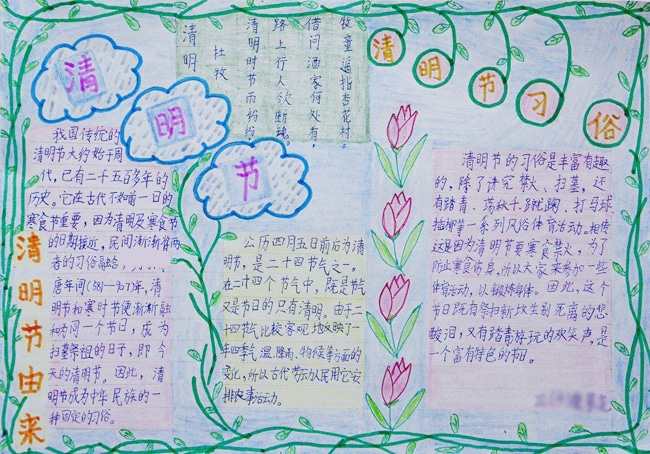 清明节
清明节由来
我国传统的
清明节大约始于周
代，已有二千五百多年的
历史。它在古代不如前一日的
寒食节重要，因为清明及寒食节
的日期接近，民间渐渐将两
者的习俗融合，……
唐年间(618—907年)，清明
节和寒时节便渐渐融
和为同一个节日，成为
扫墓祭祖的日子，即今
天的清明节。因此，清
明节成为中华民族的一
种固定的习俗。
清明
杜牧
清明时节雨纷纷
路上行人欲断魂。
借问酒家何处有，
牧童遥指杏花村。
公历四月五日前后为清
明节，是二十四节气之一。
在二十四个节气中，既是节气
又是节日的只有清明。由于二
十四节气比较客观地反映了一
年四季气温、降雨、物候等方面的
变化，所以古代劳动人民用它安
排农事活动。
清明节习俗
清明节的习俗是丰富有趣
的，除了讲究禁火、扫墓，还
有踏青、荡秋千、蹴鞠、打马球、
插柳等一系列风俗体育活动。相传
这是因为清明节要寒食禁火，为了
防止寒食伤身，所以大家来参加一些
体育活动，以锻炼身体。因此，这个
节日既有祭扫新坟生别死离的悲
酸泪，又有踏青游玩的欢笑声，是
一个富有特色的节日。